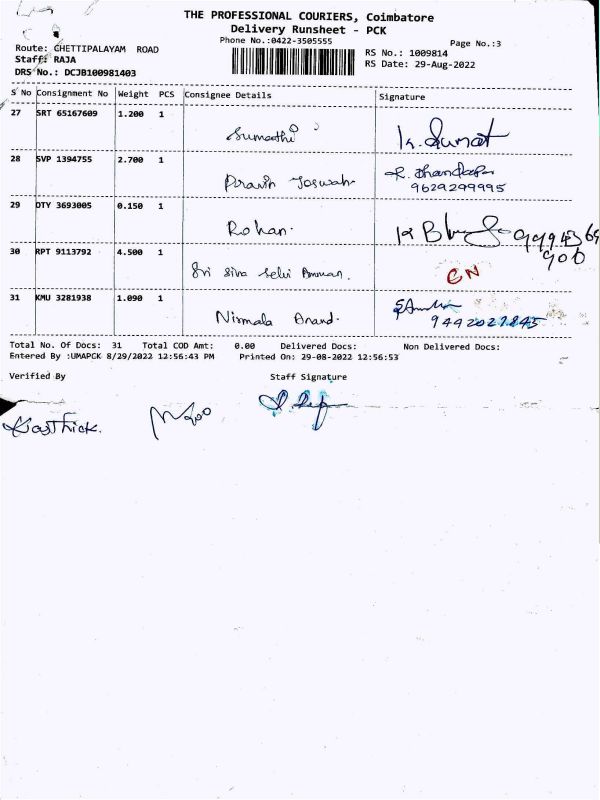 THE PROFESSIONAL COURIERS, Coimbatore
Delivery Runsheet - PCK
Phone No.:0422-3505555
Page No.:3
Route: CHETTIPALAYAM ROAD
RS No.: 1009814
Staff: RAJA
RS Date: 29-Aug-2022
DRS No.: DCJB100981403
S No Consignment No Weight PCS Consignee Details Signature
27 SRT 65167609 1.200 1
Sumathi K. Sumat
28 SVP 1394755 2.700 1
Pravin Joswah
9629299995
29 DTY 3693005 0.150 1
Rohan.
30 RPT 9113792 4.500 1
Sri Siva Selvi Amman. GN
31 KMU 3281938 1.090 1
Nirmala Anand. 9442027845
Total No. Of Docs: 31 Total COD Amt: 0.00 Delivered Docs: Non Delivered Docs:
Entered By :UMAPCK 8/29/2022 12:56:43 PM Printed On: 29-08-2022 12:56:53
Verified By Staff Signature
Karthick.